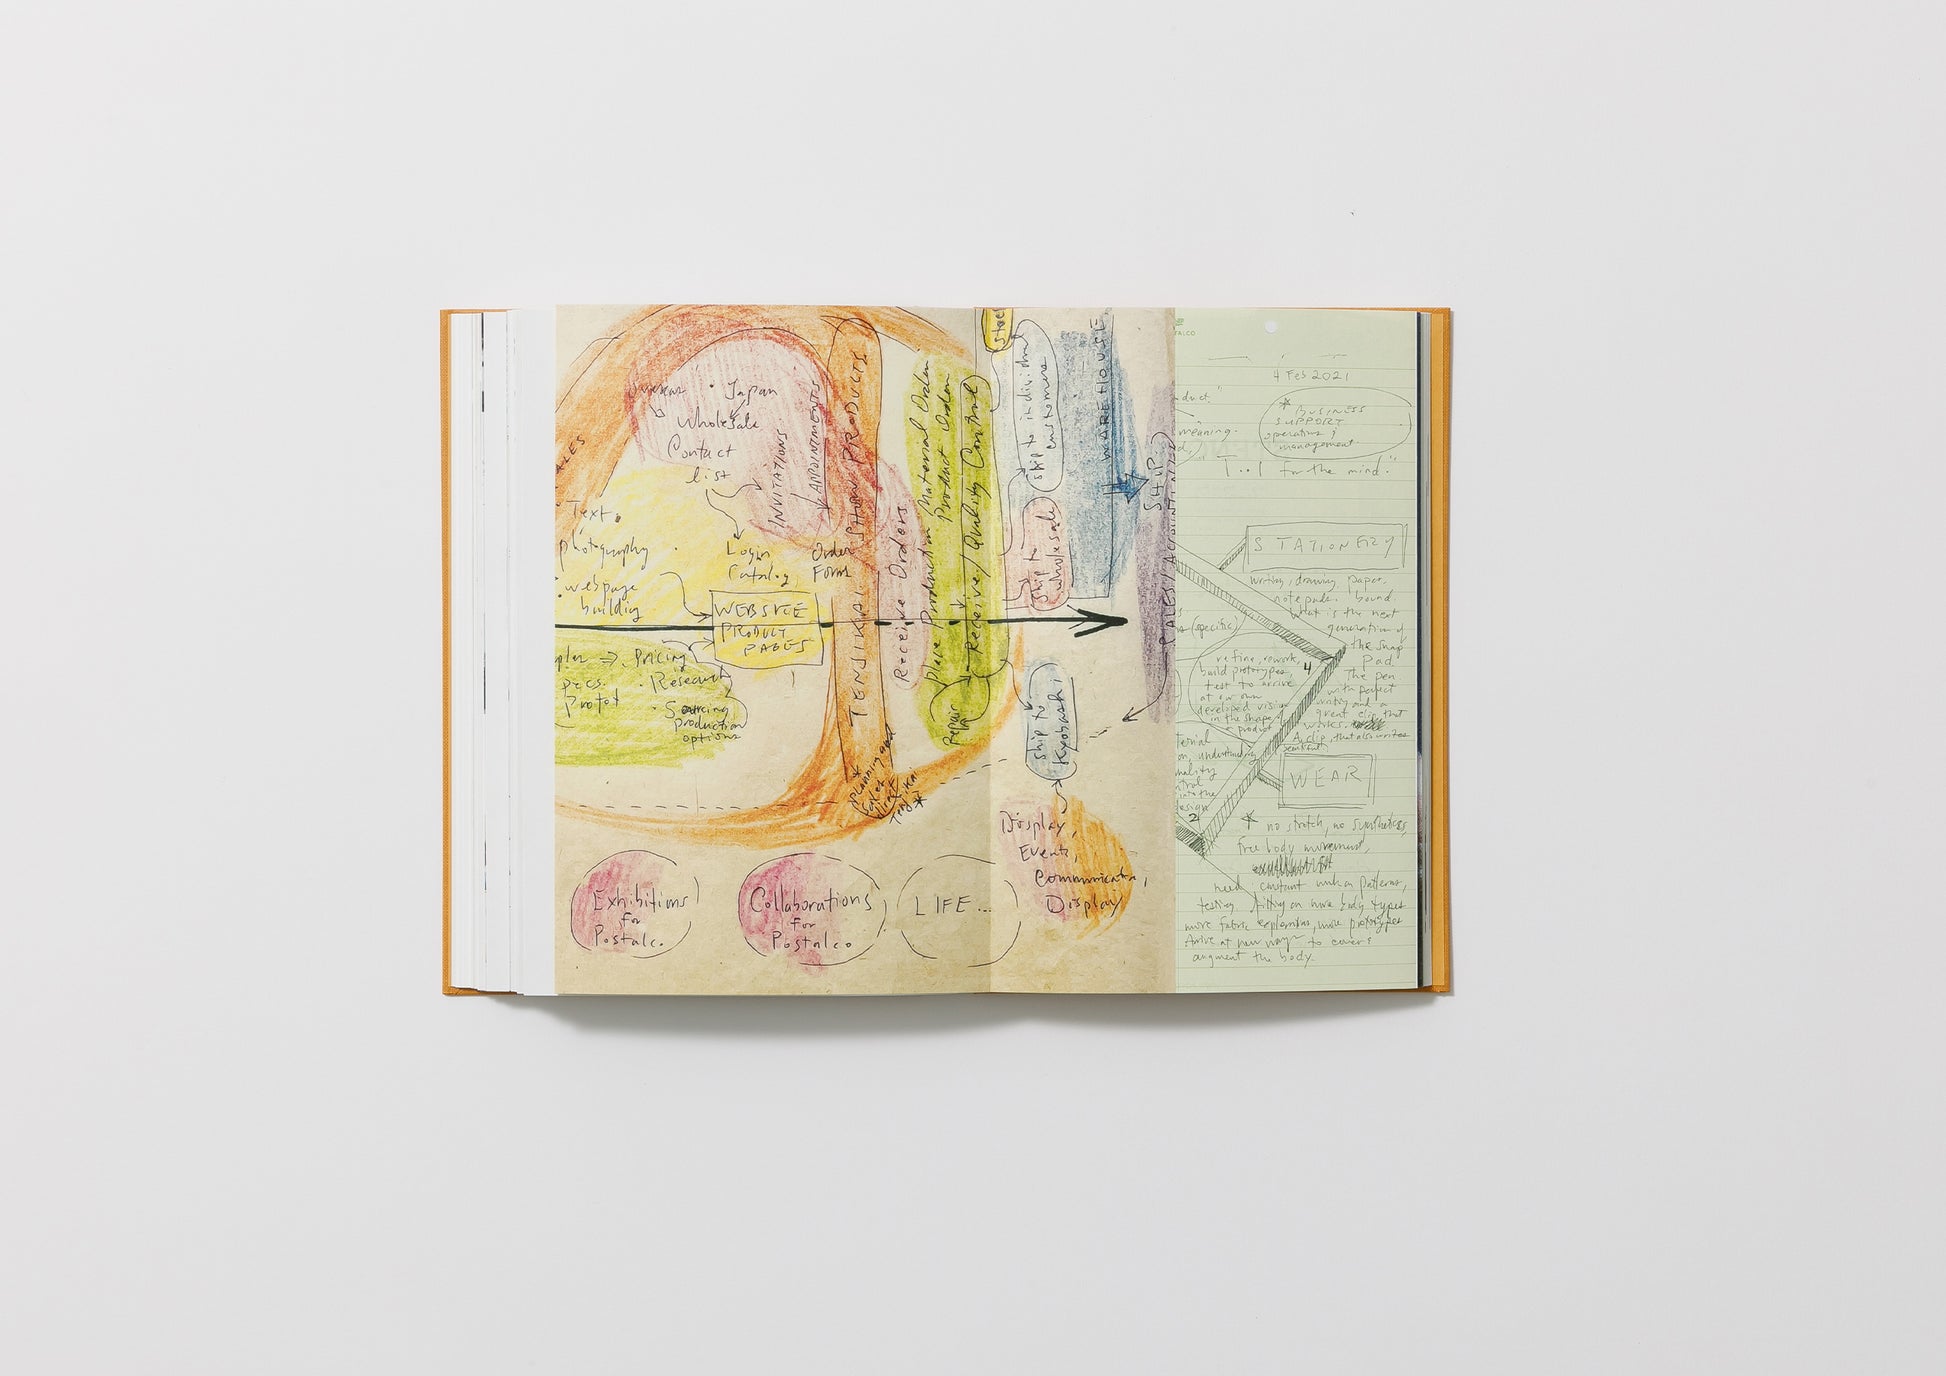 Japan
Wholesale
Contact
list
INVITATIONS
APPOINTMENTS
TENJIKAI SHOW PRODUCTS
Text
photography
webpage
building
Login
Catalog
Order
Form
WEBSITE
PRODUCT
PAGES
Pricing
Research
Sourcing
production
options
Receive Orders
Place Production Material Order
Product Order
Receive / Quality Control
Repair
Ship to individual
customers
Ship to
wholesale
WAREHOUSE
SHIP
SALES/ACCOUNTING
Ship to
Kyobashi
Display,
Events,
Communication,
Display
Exhibitions
for
Postalco
Collaborations
for
Postalco
LIFE...
4 Feb 2021
BUSINESS
SUPPORT
operations &
management
meaning.
for the mind."
STATIONERY
writing, drawing, paper,
notepads. bound.
What is the next
generation of
the snap
pad.
The pen
with perfect
writing and a
great clip that
works.
A clip, that also writes
beautiful
(specific)
refine, rework,
build prototypes,
test to arrive
at our own
developed vision
in the shape
product
4
2
WEAR
no stretch, no synthetics,
free body movement,
need constant work on patterns,
testing, fitting on more body types
more fabric explorations, more prototypes
Arrive at new ways to covers
augment the body.